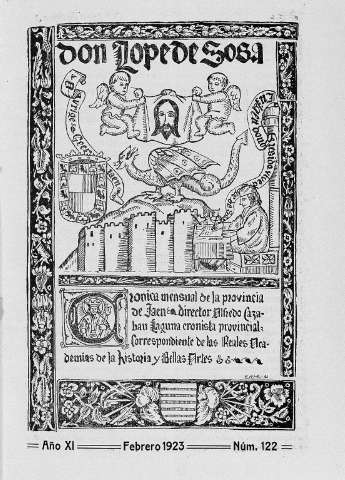 don Lope de Sosa
Cronica mensual de la provincia
de Jaen: director Alfredo Caza-
ban Laguna cronista provincial:
Correspondiente de las Reales Aca-
demias de la historia y Bellas Artes
Año XI Febrero 1923 Núm. 122